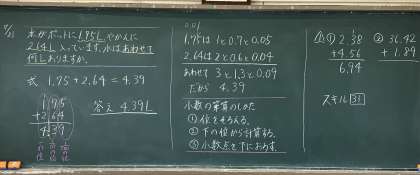 9/21
水がポットに1.75L やかんに
2.64L入っています。水はあわせて
何Lありますか。
式 1.75+2.64=4.39
1.75
+2.64
4.39
答え 4.39L
一の位
0.01
1.75は1と0.7と0.05
2.64は2と0.6と0.04
あわせて 3と1.3と0.09
だから 4.39
小数の筆算のしかた
①位をそろえる。
②下の位から計算する。
③小数点を下におろす。
① 2.38
+4.56
6.94
② 36.42
+1.89
スキル 31